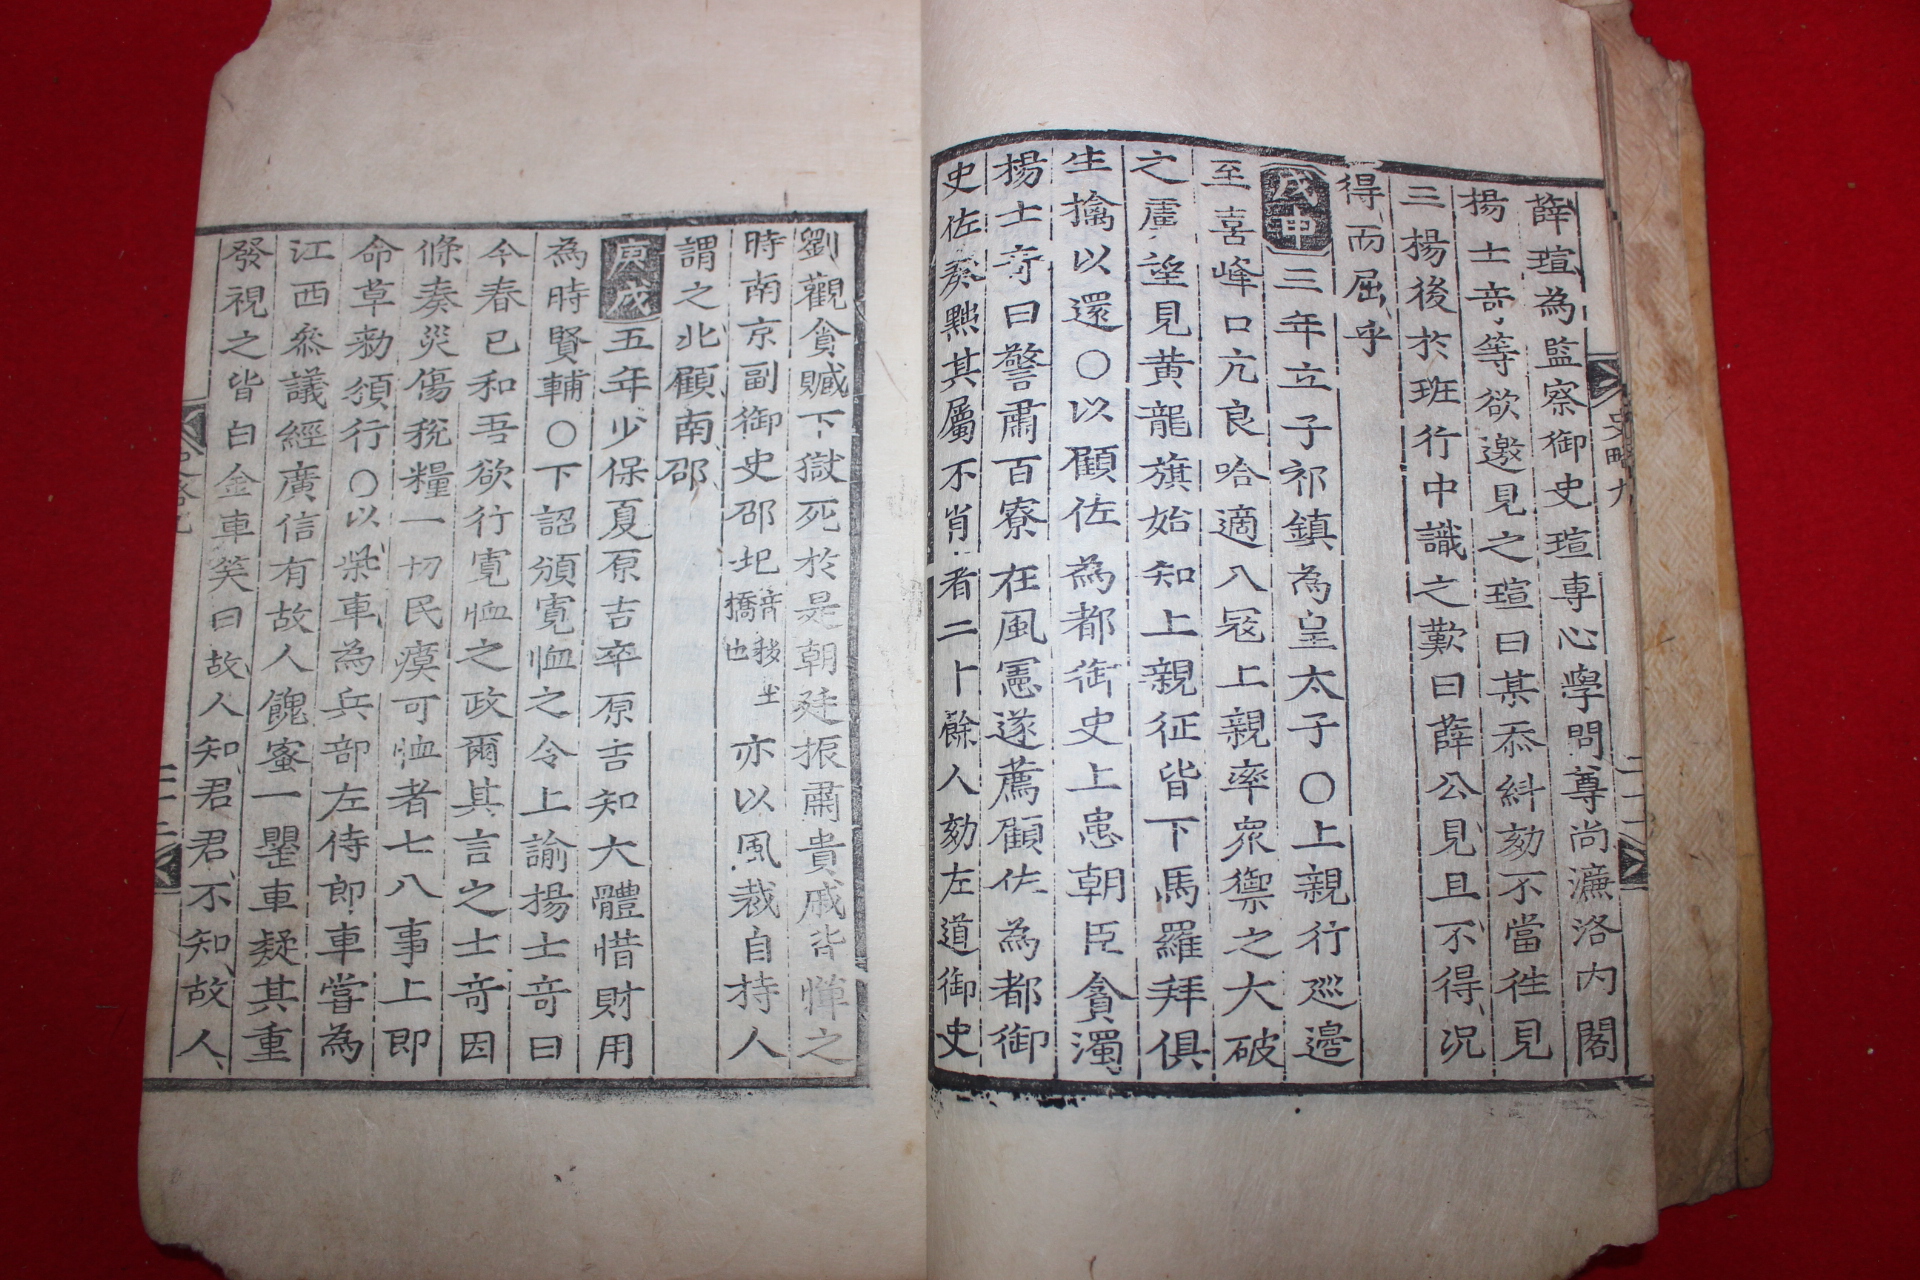 薛瑄為監察御史瑄專心學問尊尚濂洛內閣
楊士竒等欲邀見之瑄曰某忝糾劾不當徃見
三楊後於班行中識之歎曰薛公見且不得況
得而屈乎
戊申三年立子祁鎮為皇太子○上親行廵邉
至喜峰口亢良哈適入宼上親率衆禦之大破
之虜望見黄龍旗始知上親征皆下馬羅拜俱
生擒以還○以顧佐為都御史上患朝臣貪濁
楊士竒曰警肅百寮在風憲遂薦顧佐為都御
史佐奏黜其屬不肖者二十餘人劾左道御史
劉觀貪贓下獄死於是朝廷振肅貴戚皆憚之
時南京副御史邵圯音移土橋也亦以風裁自持人
謂之北顧南邵
庚戌五年少保夏原吉卒原吉知大體惜財用
為時賢輔○下詔頒寛恤之令上諭楊士竒曰
今春已和吾欲行寛恤之政爾其言之士竒因
條奏災傷稅糧一切民瘼可恤者七八事上即
命草勑須行○以柴車為兵部左侍郎車嘗為
江西叅議經廣信有故人餽蜜一罌車疑其重
發視之皆白金車笑曰故人知君君不知故人
史略九
二十二